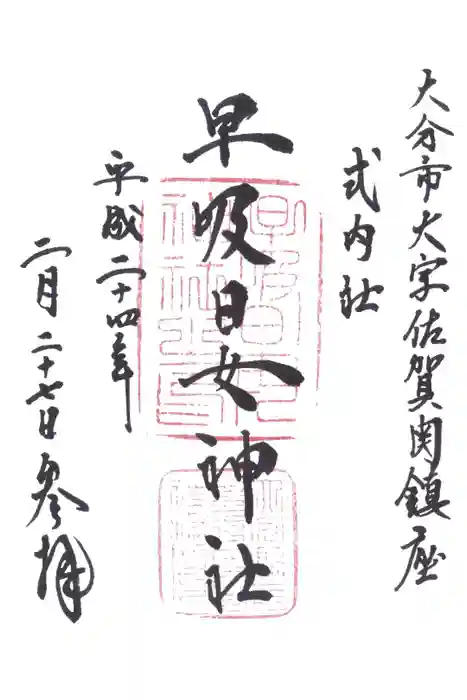 大分市大字佐賀関鎮座
式内社
早吸日女神社
平成二十四年
二月二十七日参拝